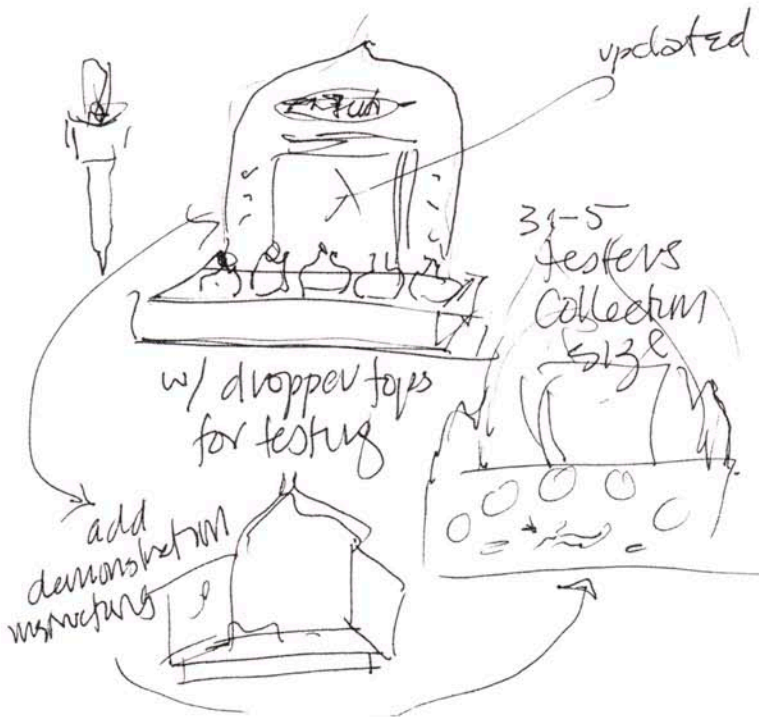 updated
testers
Collection
size
w/ dropper tops
for testing
add
demonstration